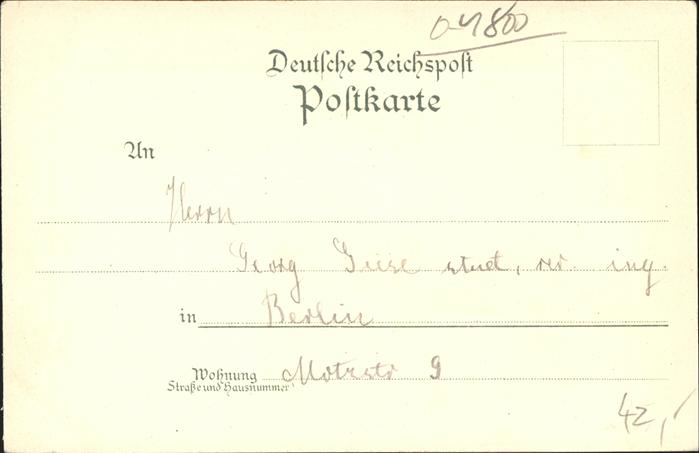 0-1800
Deutsche Reichspost
Postkarte
An
Herrn
Georg Giese stud. rer. ing.
in Berlin
Wohnung Motzstr 9
Straße und Hausnummer
42,-